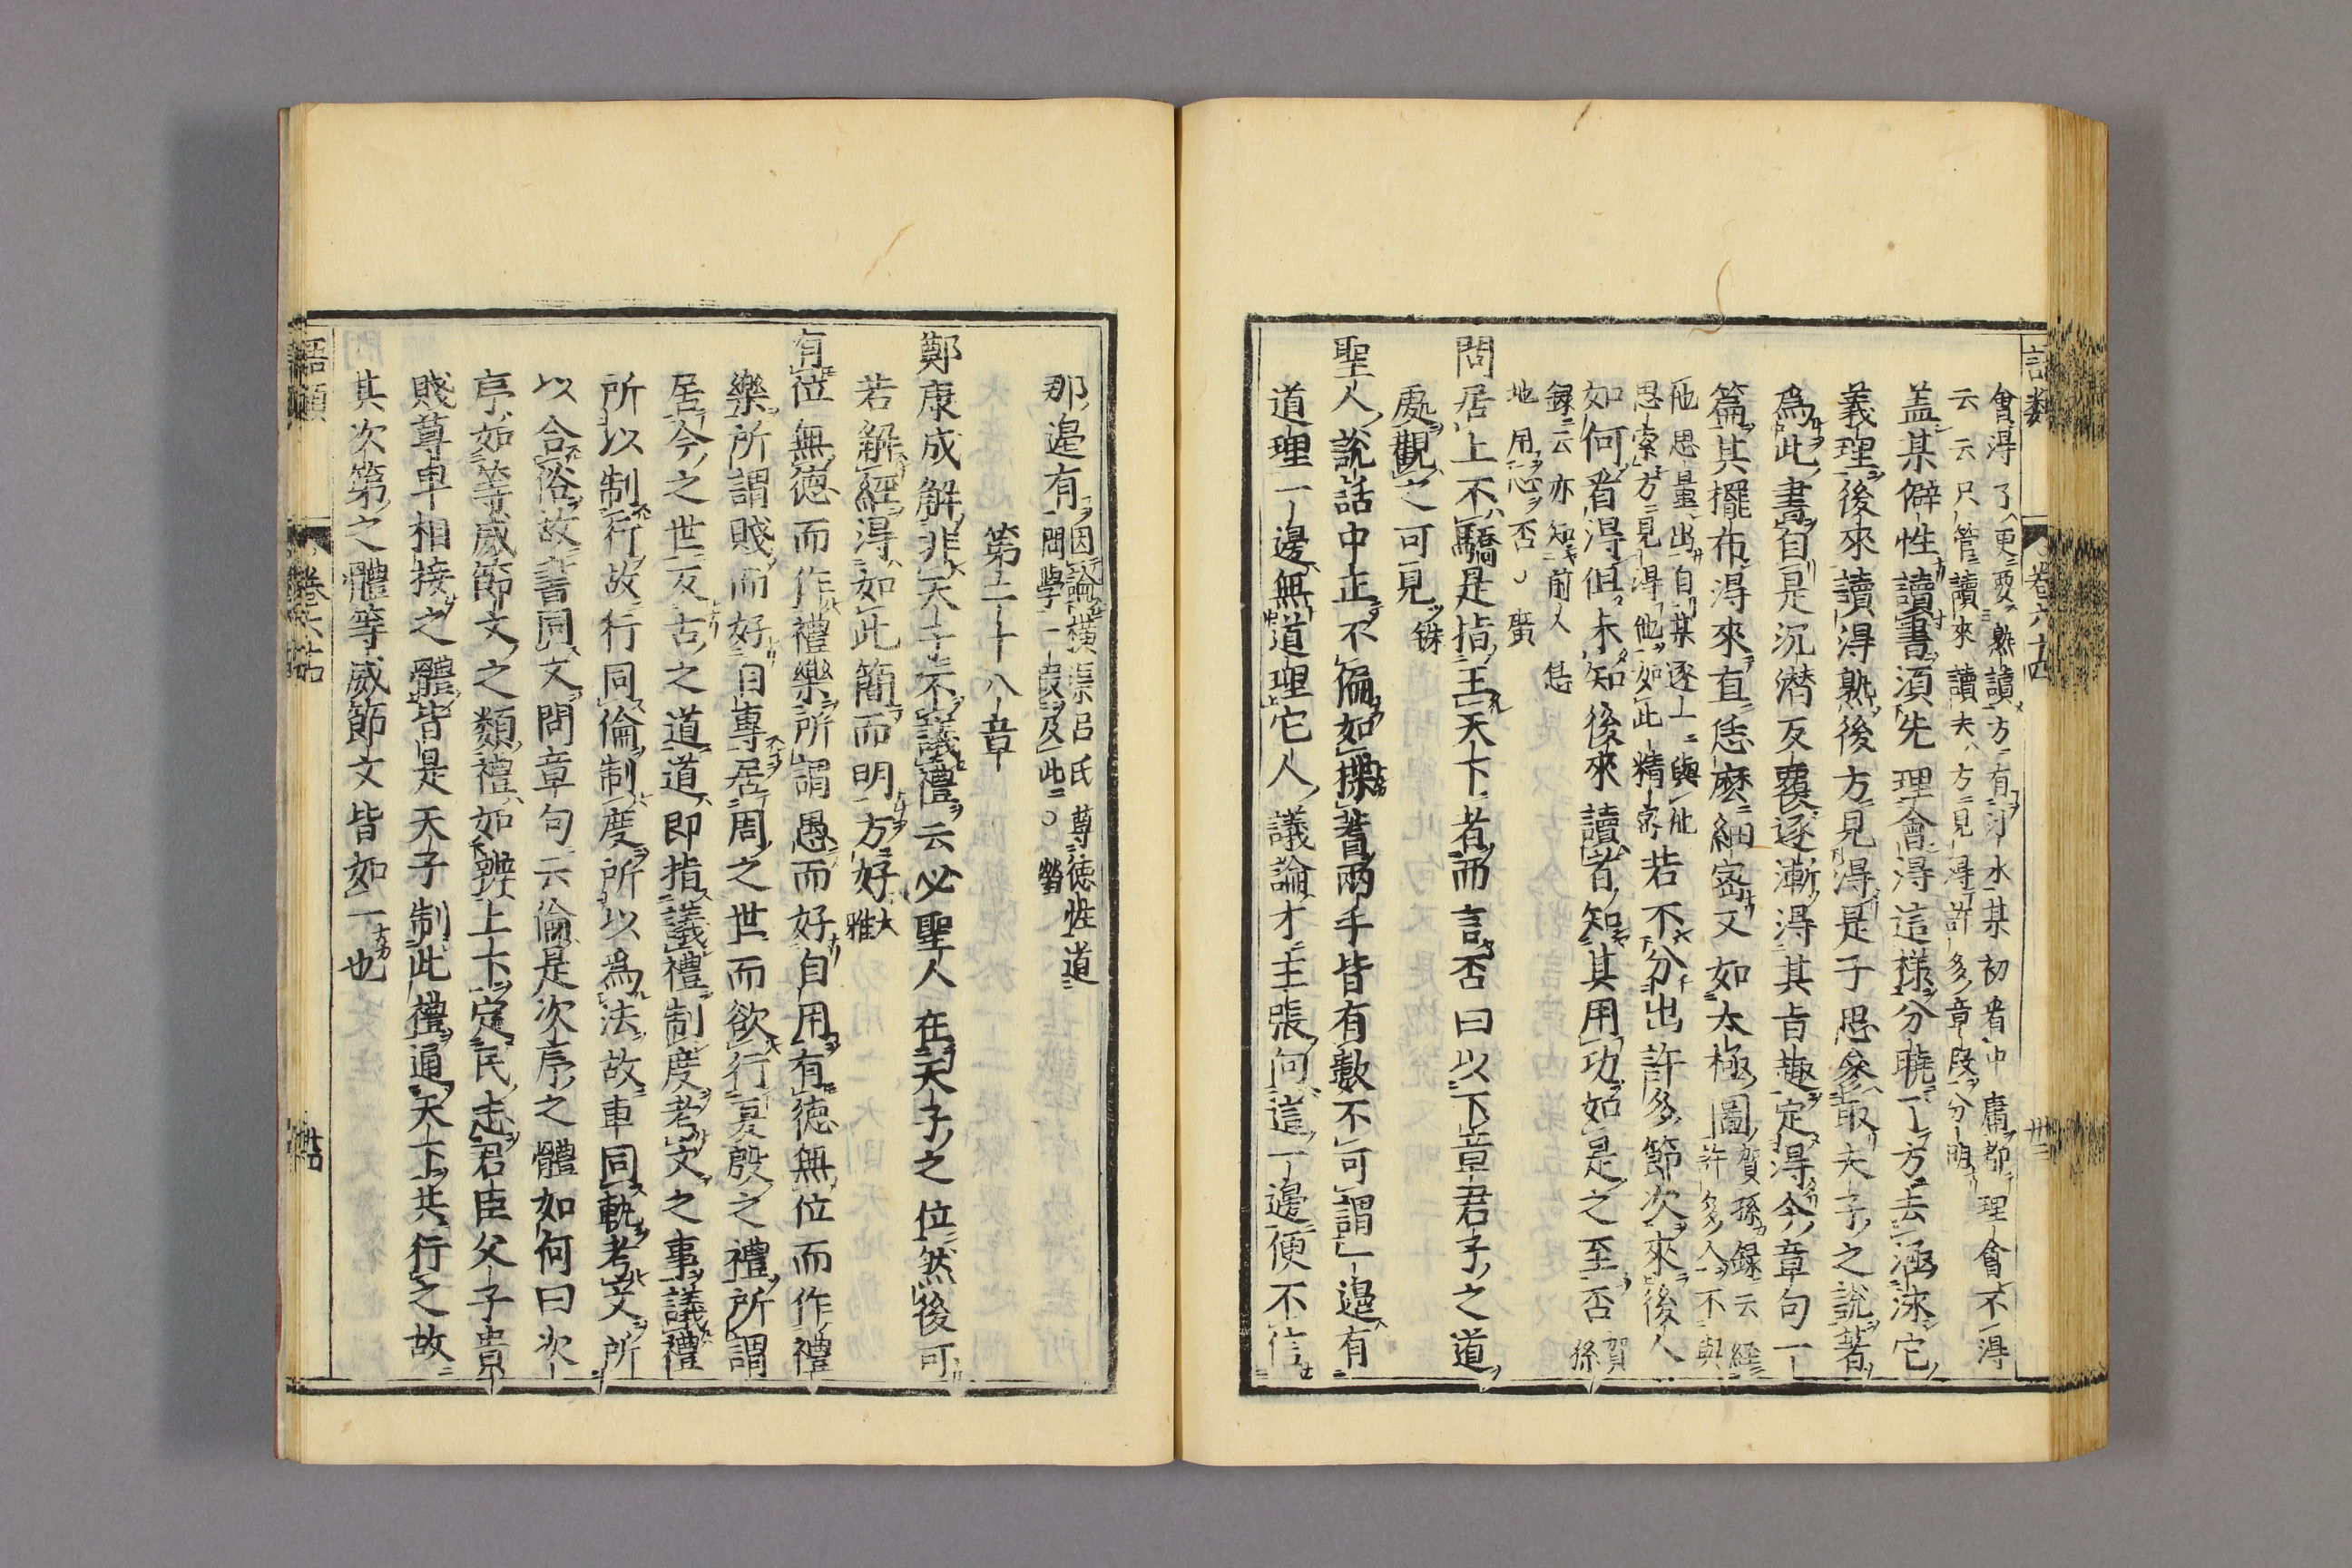 語類 卷六十四 卅三
會得了更要熟讀方有汁水某初看中庸都理會不得
云云只管讀來讀去方見得許多章段分明
蓋某僻性讀書須先理會得這樣分曉了方去涵泳它
義理後來讀得熟後方見得是子思參取夫子之說著
爲此書自是沉潛反覆逐漸得其旨趣定得今章句一
篇其擺布得來直恁麼細密又如太極圖賀孫錄云經
許多人不與
他思量出自某逐一與他
思索方見得他如此精密若不分出許多節次來後人
如何看得但未知後來讀者知其用功如是之至否賀
孫
錄云亦知前人恁
地用心否 廣
問居上不驕是指王天下者而言否曰以下章君子之道
處觀之可見 銖
聖人說話中正不偏如揲蓍兩手皆有數不可謂一邊有
道理一邊無道理它人議論才主張向這一邊便不信
那邊有因論橫渠呂氏尊德性道
問學一段及此○㽦
第二十八章
鄭康成解非天子不議禮云必聖人在天子之位然後可
若解經得如此簡而明方好大
雅
有位無德而作禮樂所謂愚而好自用有德無位而作禮
樂所謂賤而好自專居周之世而欲行夏殷之禮所謂
居今之世反古之道道即指議禮制度考文之事議禮
所以制行故行同倫制度所以爲法故車同軌考文所
以合俗故書同文問章句云倫是次序之體如何曰次
序如等威節文之類禮如辨上下定民志君臣父子貴
賤尊卑相接之體皆是天子制此禮通天下共行之故
其次第之體等威節文皆如一也
語類 卷六十四